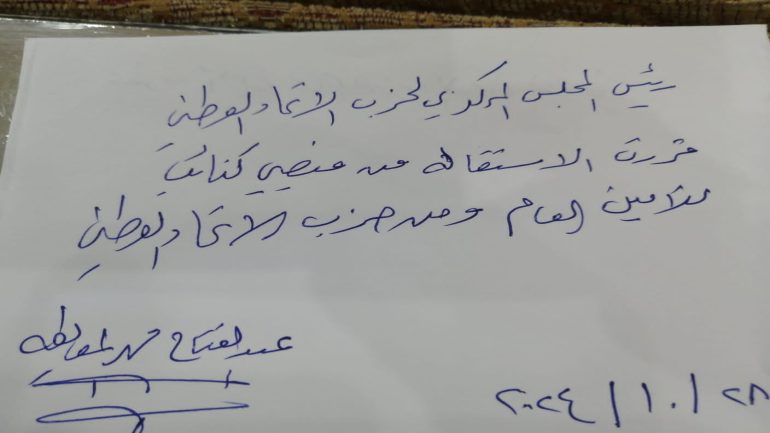 رئيس المجلس المركزي لحزب الاتحاد الوطني
قررت الاستقالة من منصبي كنائب
للامين العام ومن حزب الاتحاد الوطني
عبدالفتاح
٢٨ / ١٠ / ٢٠٢٤